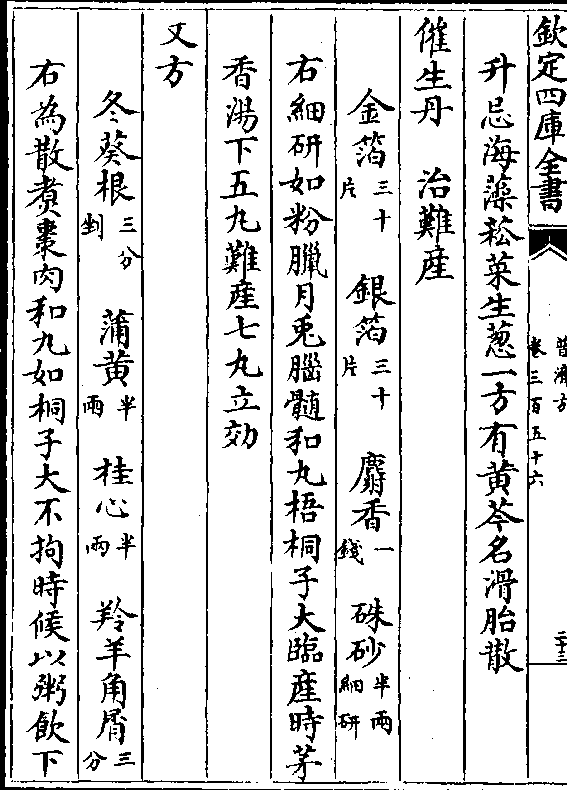 欽定四庫全書
普濟方
卷三百五十六
二十三
升忌海藻菘菜生葱一方有黄芩名滑胎散
催生丹 治難産
金箔三十片 銀箔三十片 麝香一錢 硃砂半兩細研
右細研如粉臘月兎腦髓和丸梧桐子大臨産時茅
香湯下五丸難産七丸立効
又方
冬葵根三分剉 蒲黄半兩 桂心半兩 羚羊角屑三分
右為散煑棗肉和丸如桐子大不拘時候以粥飲下